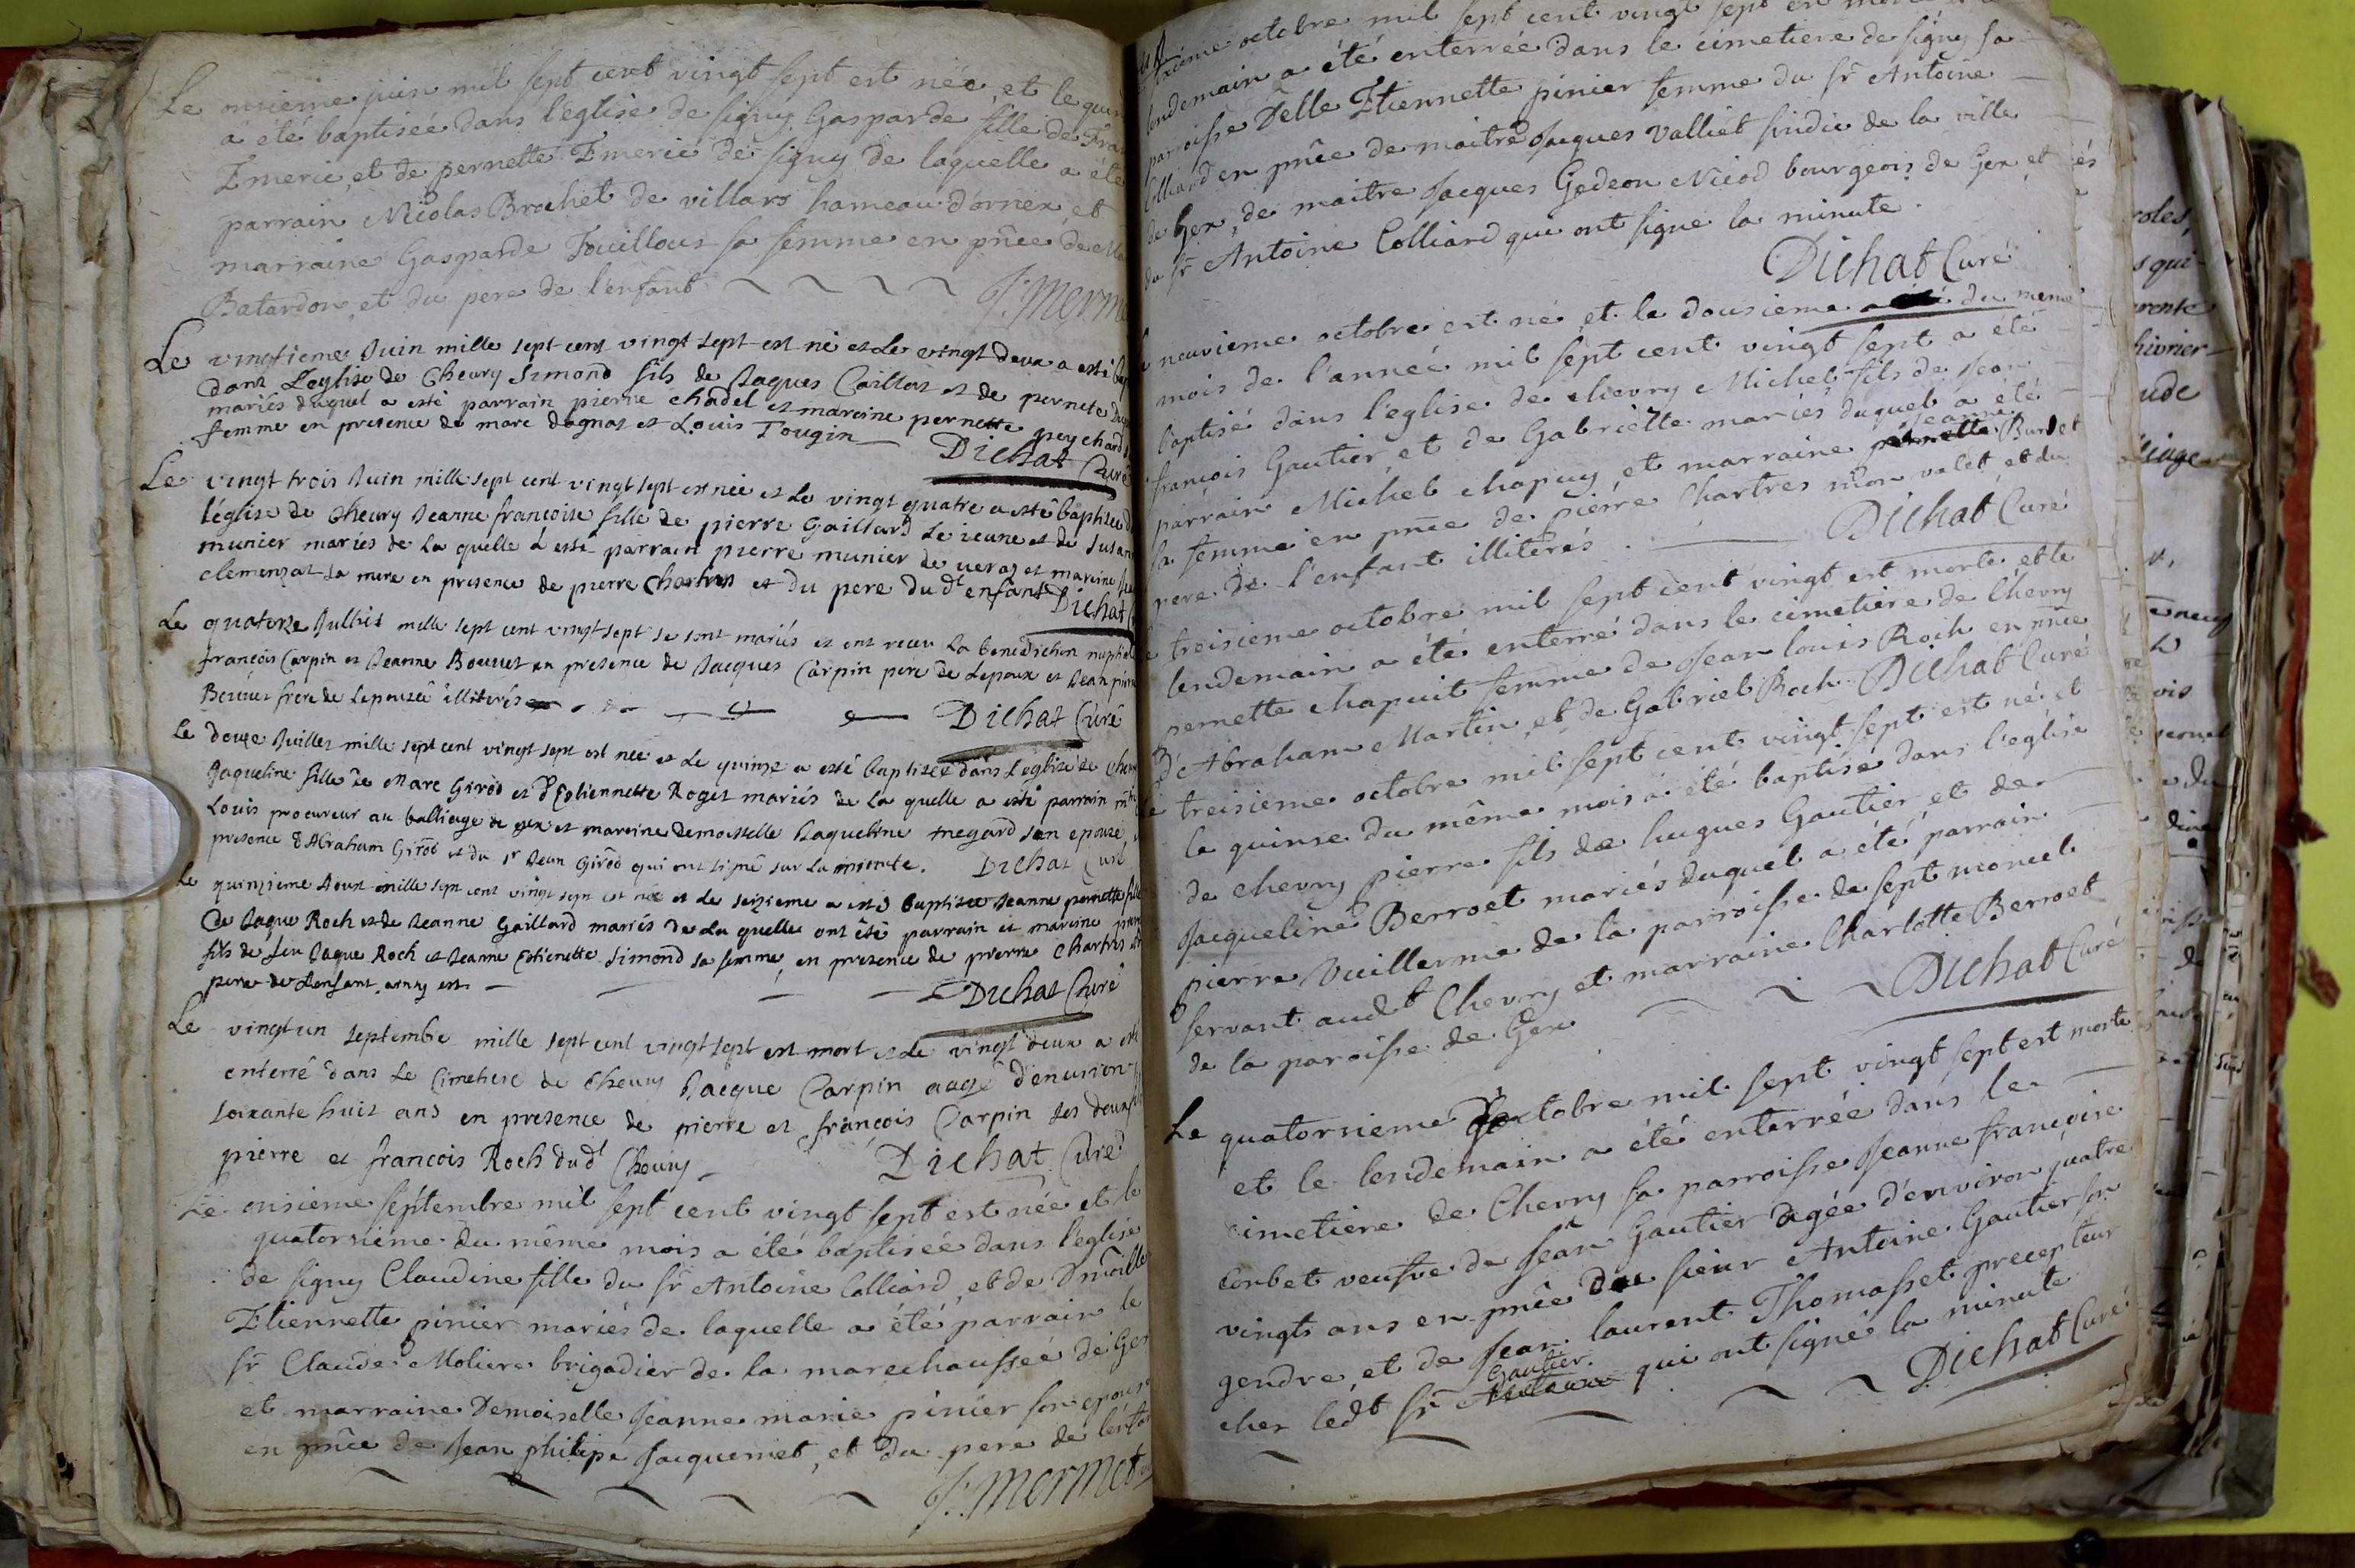 Le onsieme juin mil sept cent vingt sept est née, et le quin
a été baptisée dans l'église de signy Gasparde fille de Fran
Emeric, et de pernette Emeric de signy de laquelle a été
parrain Nicolas Brochet de villars hameau d'ornex et
marraine Gasparde Fouilloux sa femme en pñce de
Batardon et du pere de l'enfant
J: Merme
Le vingtieme Juin mille sept cent vingt sept est né et Le vingt deux a esté
dans L'eglise de Cheury Simond fils de Jaques Caillat et de pernete
mariés duquel a esté parrain pierre chadel et mareine pernette peychard
femme en presence de marc dagnat et Louis Tougin
Dichat Curé
Le vingt trois Juin mille sept cent vingt sept est née et Le vingt quatre a esté baptisée
l'église de Cheury Jeanne françoise fille de pierre Gaillard Le jeune et de Susan
munier mariés de La quelle a esté parrain pierre munier de ueraz et mareine
clemenzat sa mere en presence de pierre Chartres et du pere dud.t enfant Dichat
Le quatorze Julliet mille sept cent vingt sept se sont mariés et ont receu La benediction nuptiale
françois Carpin et Jeanne Bouuet en presence de Jacques Carpin pere de Lepoux et Jean pierre
Bouuet frere de Lepouseé illiterés
Dichat Curé
Le douze Juillet mille sept cent vingt sept est née et Le quinze a esté baptiseé dans L'eglise de Cheu
Jaqueline fille de Marc Girod et d'Estiennette Roget mariés de La quelle a esté parrain
Louis procureur au balliage de gex et mareine demoiselle Jaqueline megard son epouse
presence d'Abraham Girod et du Sr Jean Girod qui ont signé sur La minute. Dichat Curé
Le quinzieme Aoust mille sept cent vingt sept est née et Le seizieme a esté baptisee Jeanne pernette fille
de Jaque Roch et de Jeanne Gaillard mariés de La quelle ont été parrain et mareine
fils de feu Jaque Roch et Jeanne Estienette Simond sa femme, en presence de pierre Chartres
pere de Lenfant
Dichat Curé
Le vingt un septembre mille sept cent vingt sept est mort et Le vingt deux a esté
enterré dans Le Cimetiere de Cheury Jacque Carpin aagé d'enuiron
soixante huit ans en presence de pierre et françois Carpin ses deux
pierre et françois Roch dud.t Cheury
Dichat Curé
Le onsieme septembre mil sept cent vingt sept est née et le
quatorsieme du même mois a été baptisée dans l'eglise
de signy Claudine fille du sr Antoine Colliard, et de Dmoille
Etiennette pinier mariés de laquelle a été parrain le
sr Claude Moliere brigadier de la marechaussée de Gex
et marraine Demoiselle Jeanne marie pinier son epouse
en pñce de Jean philipe Jacquemet, et du pere de l'enfan
J: Mermet
octobre mil sept cent vingt sept
lendemain a été enterrée dans le cimetiere de signy sa
parroisse Delle Etiennette pinier femme du sr Antoine
Colliard en pñce de maitre Jacques Valliet sindic de la ville
de Gex, de maitre Jacques Gedeon Nicod bourgeois de Gex, et
du sr Antoine Colliard qui ont signé la minute.
Dichat Curé
neuvieme octobre est né et le dousieme du meme
mois de l'année mil sept cent vingt sept a été
baptisé dans l'eglise de chevry Michel fils de Jean
françois Gautier, et de Gabrielle mariés duquel a été
parrain Michel chapuy, et marraine Jeanne Burdet
sa femme en pñce de pierre Chartres mon valet et du
pere de l'enfant illiterés.
Dichat Curé
treisieme octobre mil sept cent vingt est morte et le
lendemain a été enterré dans le cimetiere de Chevry
pernette chapuit femme de Jean louis Roch en pñce
d'Abraham Martin, et de Gabriel Roch Dichat Curé
treisieme octobre mil sept cent vingt sept est né, et
le quinse du même mois a été baptisé dans l'eglise
de chevry pierre fils de hugues Gautier, et de
Jacqueline Berroet mariés duquel a été parrain
pierre Vuillerme de la parroisse de sept moncel
servant aud.t Chevry et marraine Charlotte Berroet
de la paroisse de Gex
Dichat Curé
Le quatorsieme octobre mil sept vingt sept est morte
et le lendemain a été enterrée dans le
cimetiere de Chevry sa parroisse Jeanne françoise
Corbet veufve de Jean Gautier agée d'environ quatre
vingts ans en pñce du sieur Antoine Gautier son
gendre, et de Jean laurent Thomasset precepteur
cher led.t sr Gautier qui ont signé la minute
Dichat Curé